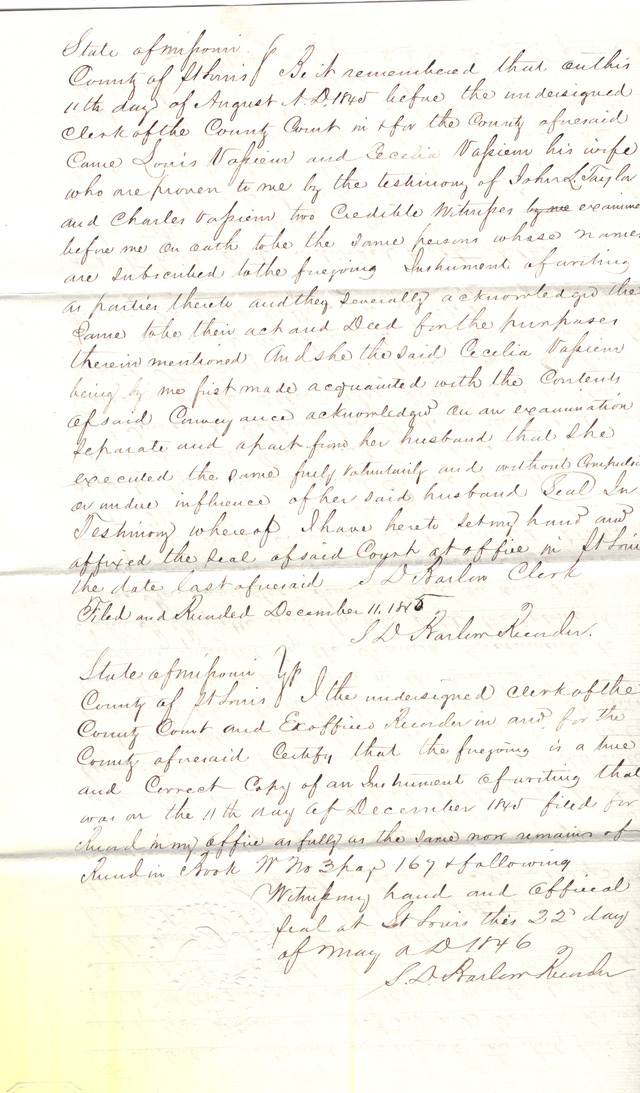 State of Missouri
County of St Louis } Be it remembered that on this
11th day of August A.D. 1845 before the undersigned
Clerk of the County Court in & for the County aforesaid
Came Louis Vassieur and Cecelia Vassieur his wife
who are proven to me by the testimony of John L. Taylor
and Charles Vassieur two Credible Witnesses by me examine
before me on oath to be the same persons whose names
are subscribed to the foregoing Instrument of writing
as parties thereto and they severally acknowledged the
Same to be their act and Deed for the purposes
therein mentioned And she the said Cecelia Vassieur
being by me first made acquainted with the Contents
of said Conveyance acknowledged on an examination
separate and apart from her husband that she
executed the same freely voluntarily and without Compulsi
or undue influence of her said husband Seal In
Testimony whereof I have hereto set my hand and
affixed the seal of said Court at office in St Louis
the date last aforesaid S D Barlow Clerk
Filed and Recorded December 11. 1845
S D Barlow Recorder.
State of Missouri
County of St Louis } I the undersigned clerk of the
County Court and Exofficio Recorder in and for the
County aforesaid Certify that the foregoing is a true
and Correct Copy of an Instrument of writing that
was on the 11th day of December 1845 filed for
Record in my office as fully as the same now remains of
Record in Book W No 3 page 167 & following
Witness my hand and official
seal at St Louis this 22d day
of May A D 1846
S. D. Barlow Recorder